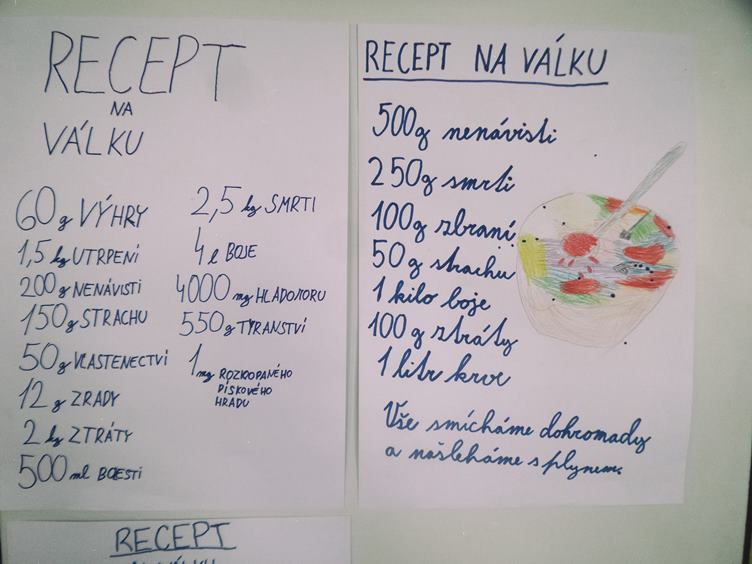 RECEPT
NA
VÁLKU
60 g VÝHRY
1,5 kg UTRPENÍ
200 g NENÁVISTI
150 g STRACHU
50 g VLASTENECTVÍ
12 g ZRADY
2 kg ZTRÁTY
500 ml BOESTI
2,5 kg SMRTI
4 l BOJE
4000 mg HLADOMORU
550 g TYRANSTVÍ
1 mg ROZKOPANÉHO
PÍSKOVÉHO
HRADU
RECEPT NA VÁLKU
500g nenávisti
250g smrti
100g zbraní
50g strachu
1 kilo boje
100g ztráty
1 litr krve
Vše smícháme dohromady
a našleháme s plynem.
RECEPT